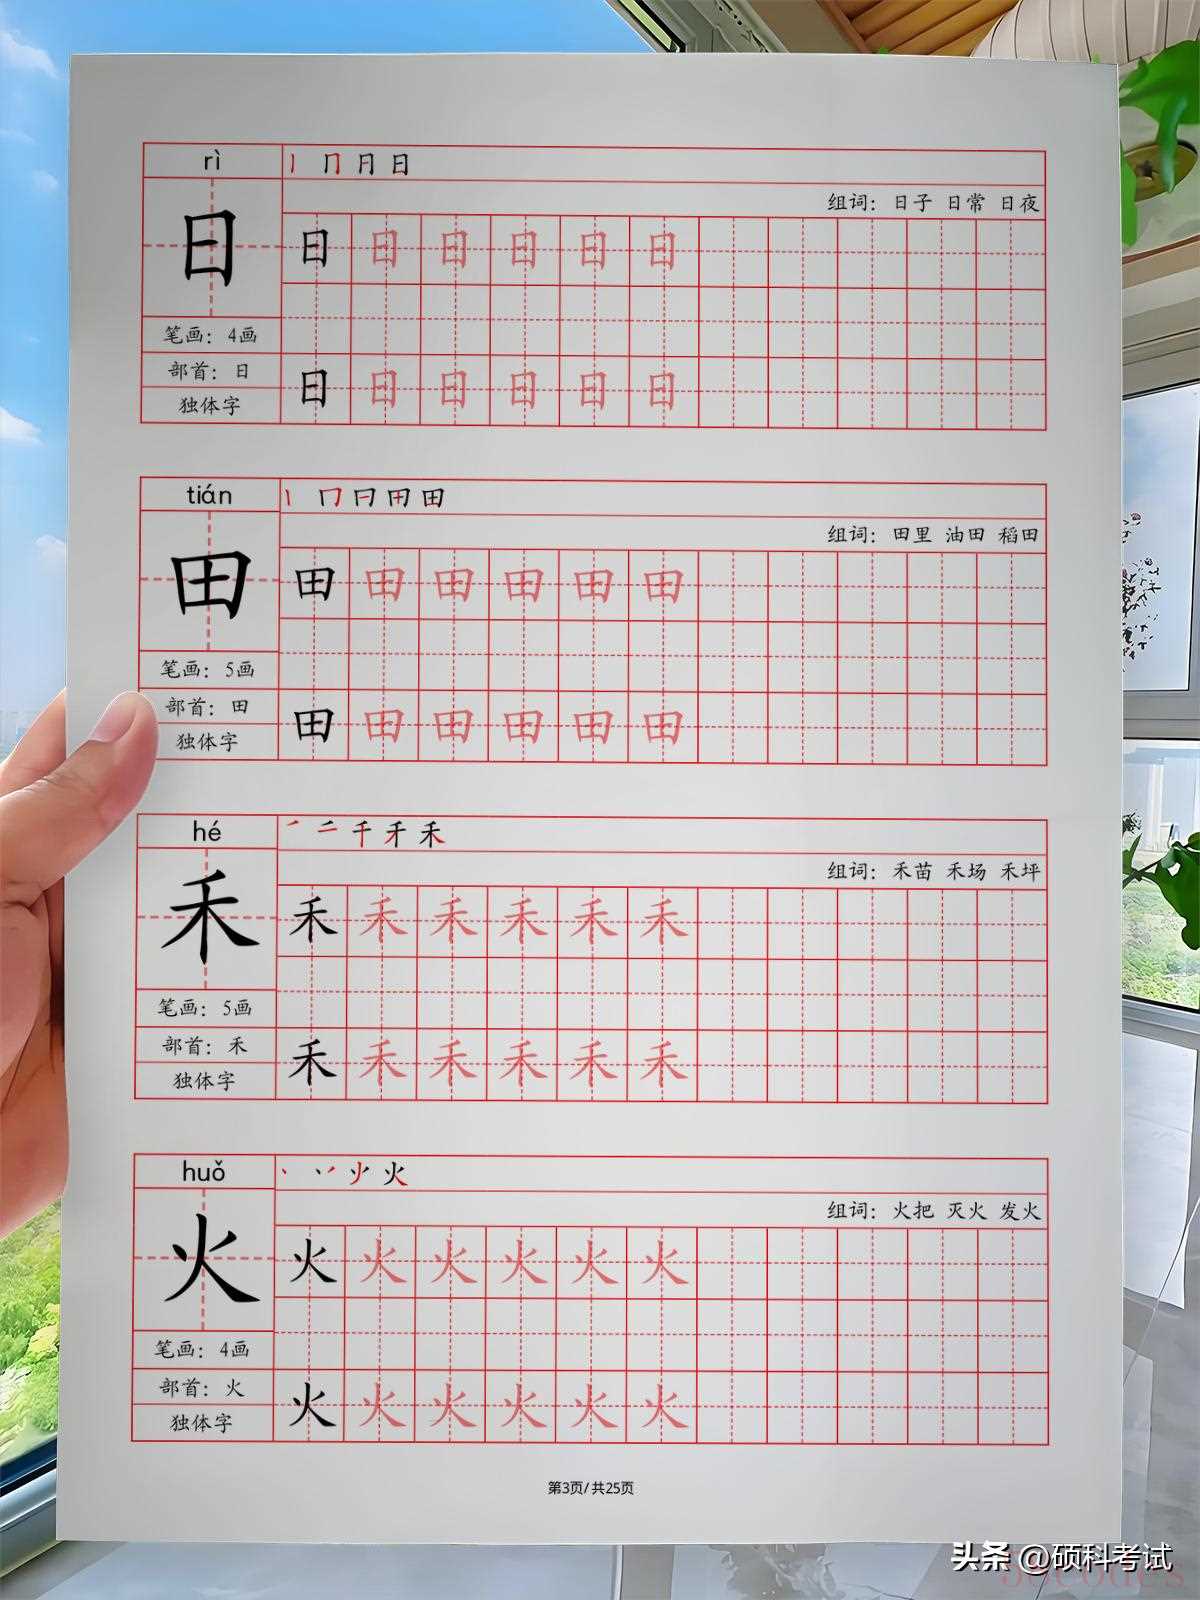 rì
丨 冂 日 日
组词：日子 日常 日夜
日
日 日 日 日 日 日
笔画：4画
部首：日
日 日 日 日 日 日
独体字
tián
丨 冂 日 田 田
组词：田里 油田 稻田
田
田 田 田 田 田 田
笔画：5画
部首：田
田 田 田 田 田 田
独体字
hé
千 禾 禾
组词：禾苗 禾场 禾坪
禾
禾 禾 禾 禾 禾 禾
笔画：5画
部首：禾
禾 禾 禾 禾 禾 禾
独体字
huǒ
火 火
组词：火把 灭火 发火
火
火 火 火 火 火 火
笔画：4画
部首：火
火 火 火 火 火 火
独体字
第3页/共25页
头条 @硕科考试